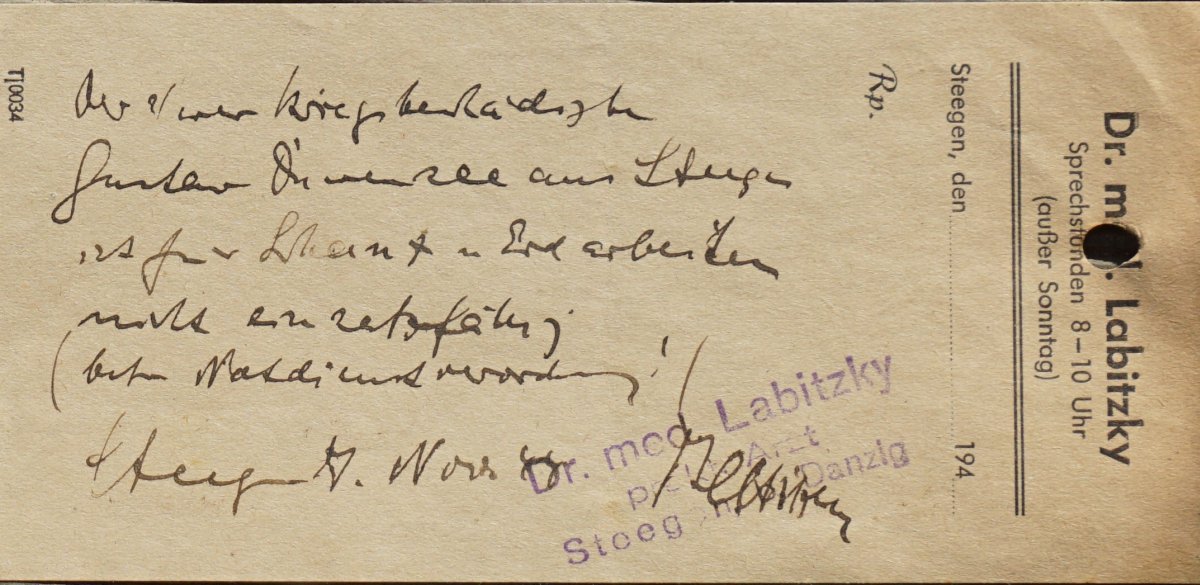 Dr. med. Labitzky
Sprechstunden 8–10 Uhr
(außer Sonntag)
Steegen, den 194
Rp.
Der schwer Kriegsbeschädigte
Gustav aus Steegen
ist für Schanz u Erdarbeiten
nicht einsatzfähig
(betr Notdienstverordnung!)
Steegen Nov 44
Dr. med. Labitzky
prakt. Arzt
Steegen Danzig
Tj0034